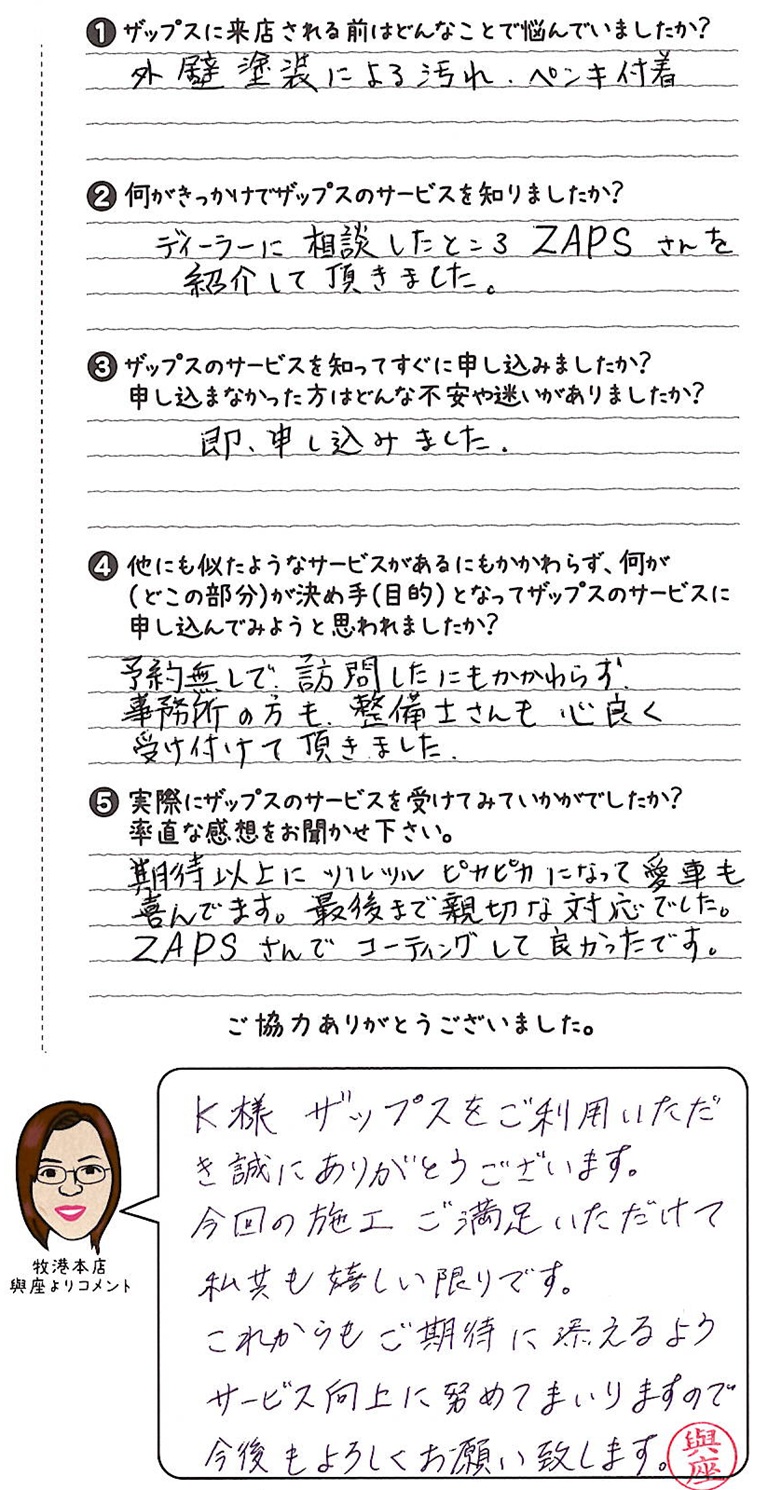 ❶ ザップスに来店される前はどんなことで悩んでいましたか?
外壁塗装による汚れ、ペンキ付着
❷ 何がきっかけでザップスのサービスを知りましたか?
ディーラーに相談したところ ZAPSさんを
紹介して頂きました。
❸ ザップスのサービスを知ってすぐに申し込みましたか?
申し込まなかった方はどんな不安や迷いがありましたか?
即、申し込みました.
❹ 他にも似たようなサービスがあるにもかかわらず、何が
(どこの部分)が決め手(目的)となってザップスのサービスに
申し込んでみようと思われましたか?
予約無しで、訪問したにもかかわらず、
事務所の方も、整備士さんも 心良く
受け付けて頂きました.
❺ 実際にザップスのサービスを受けてみていかがでしたか?
率直な感想をお聞かせ下さい。
期待以上に ツルツル ピカピカになって愛車も
喜んでます。最後まで親切な対応でした。
ZAPSさんで コーティングして良かったです。
ご協力ありがとうございました。
K様 ザップスをご利用いただ
き誠にありがとうございます。
今回の施工 ご満足いただけて
私共も嬉しい限りです。
これからもご期待に添えるよう
サービス向上に努めてまいりますので
今後もよろしくお願い致します。
與座
牧港本店
與座よりコメント